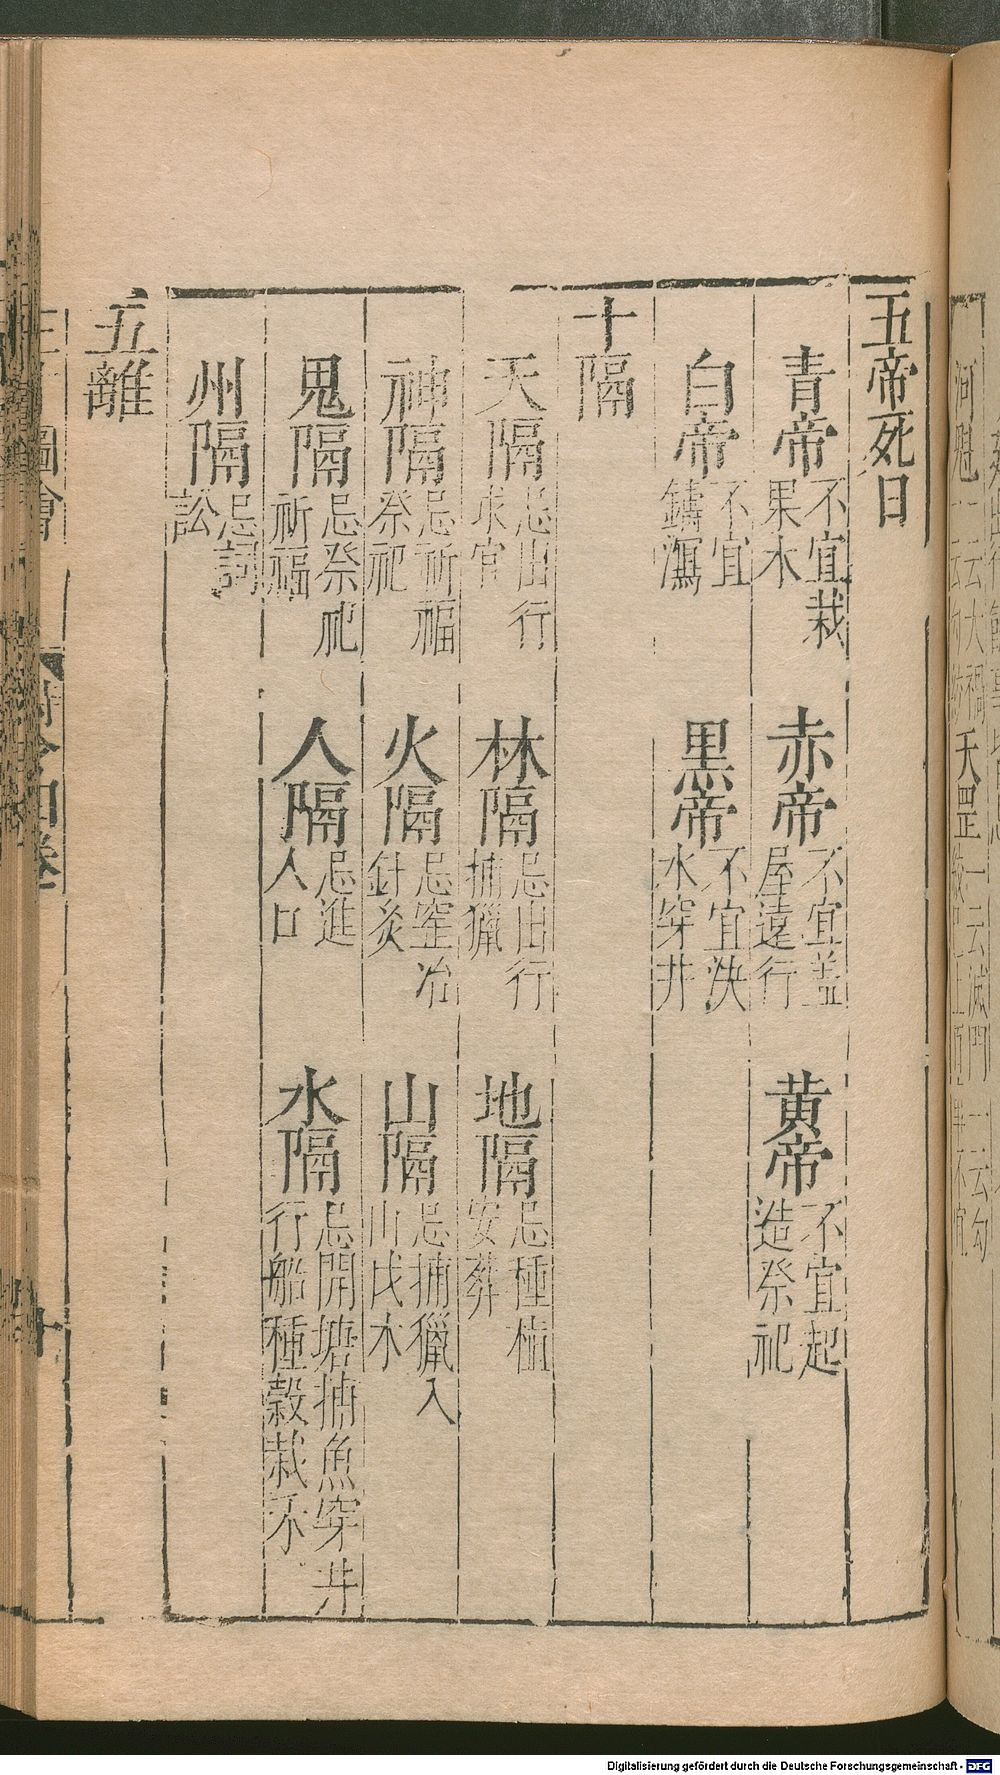 五帝死日
青帝 不宜栽果木 赤帝 不宜蓋屋遠行 黄帝 不宜起造祭祀
白帝 不宜鑄瀉 黒帝 不宜決水穿井
十隔
天隔 忌出行求官 林隔 忌出行捕獵 地隔 忌種植安葬
神隔 忌祈福祭祀 火隔 忌窑冶針灸 山隔 忌捕獵入山伐木
鬼隔 忌祭祀祈福 人隔 忌進人口 水隔 忌開塘捕魚穿井行船種穀栽禾
州隔 忌詞訟
五離
圖會
時令四卷
十
河魁
天罡 一云滅門 一云勾
Digitalisierung gefördert durch die Deutsche Forschungsgemeinschaft - DFG